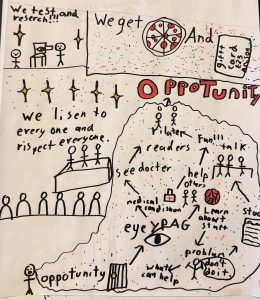 We test and
reserch!!!
We get
And
gift
card
£25
Oppotunity
We lisen to
every one and
rispect everyone.
readers
Fun!!!
talk
see docter
help
others
medical
condition
Learn
about
staff
eye PAG
problem
don't
do it
oppotunity
what
can help